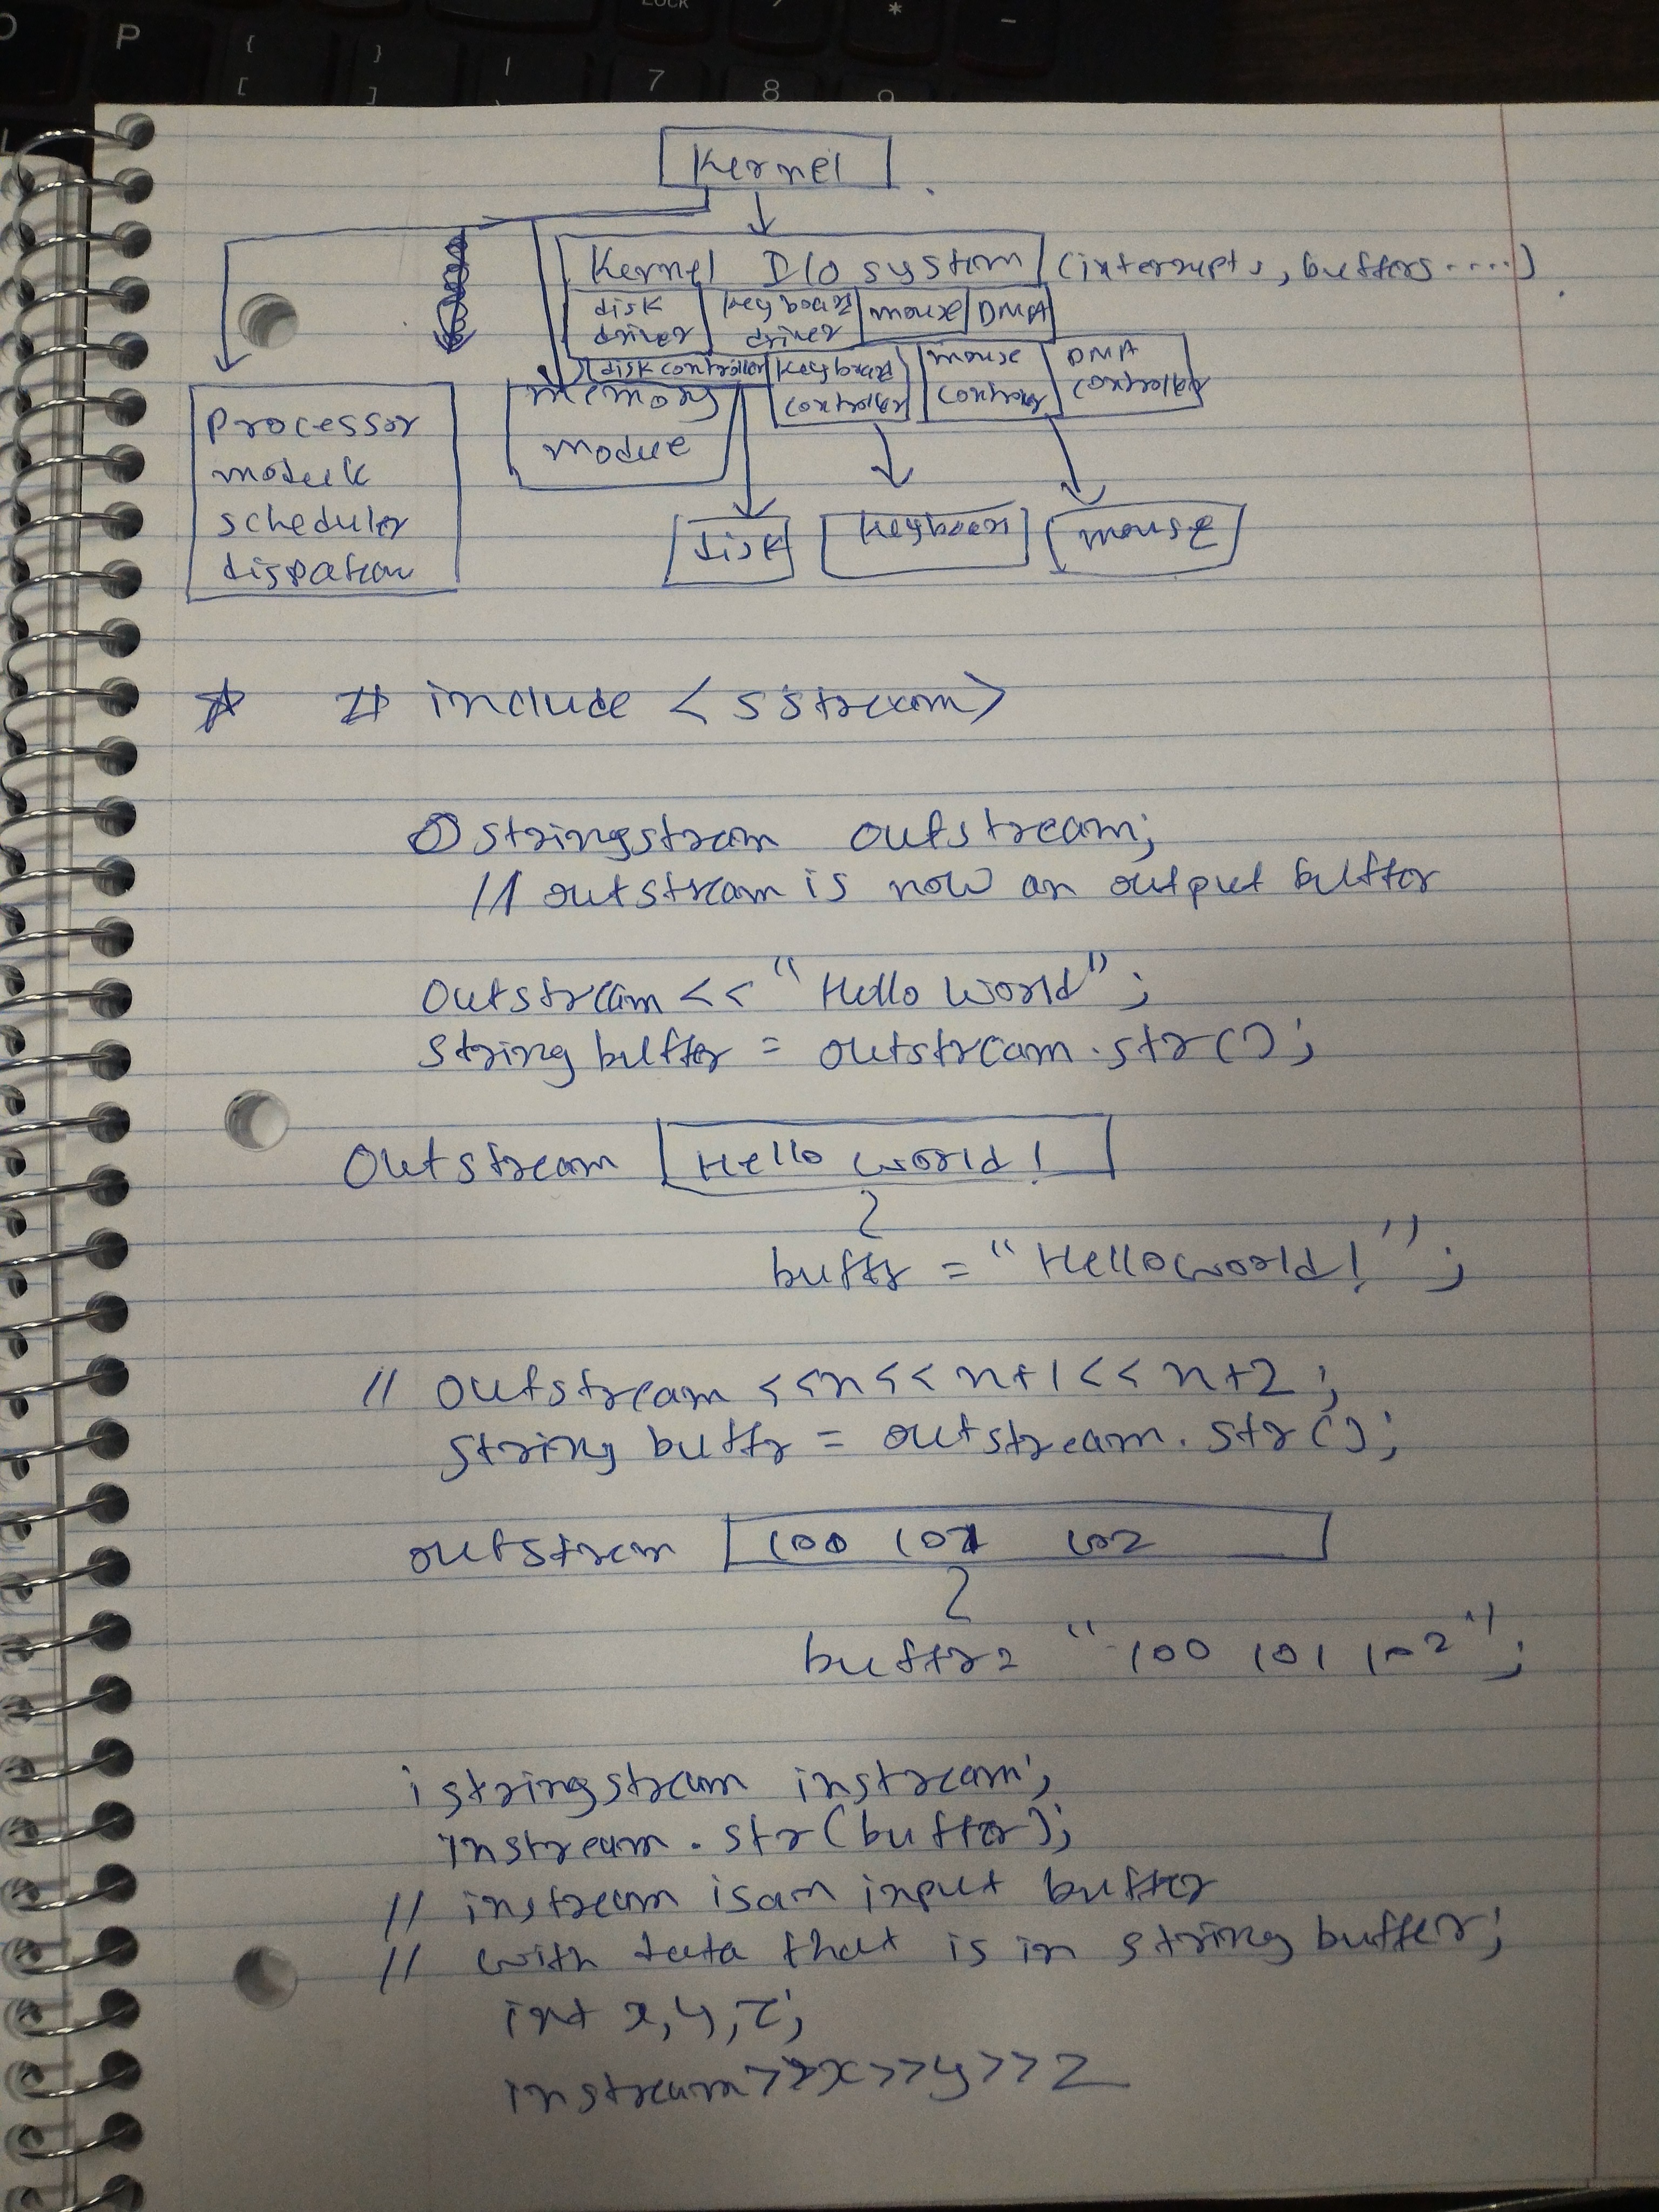 P
{
[
}
]
|
\
LOCK
7
8
9
*
-
Kernel
Kernel I/O system (interrupts, buffers.....)
disk driver
keyboard driver
mouse
DMA
disk controller
keyboard controller
mouse controller
DMA controller
memory
module
Processor
module
scheduler
disk
keyboard
mouse
# include <sstream>
Ostringstream outstream;
// outstream is now an output buffer
outstream << "Hello World";
string buffer = outstream.str();
Outstream Hello world!
buffer = "Hello world!";
// outstream <<n<< n+1<< n+2;
string buffer = outstream.str();
outstream 100 101 102
buffer = "100 101 102";
istringstream instream;
instream.str(buffer);
// instream is an input buffer
// with data that is in string buffer;
int x,y,z;
instream>>x>>y>>z